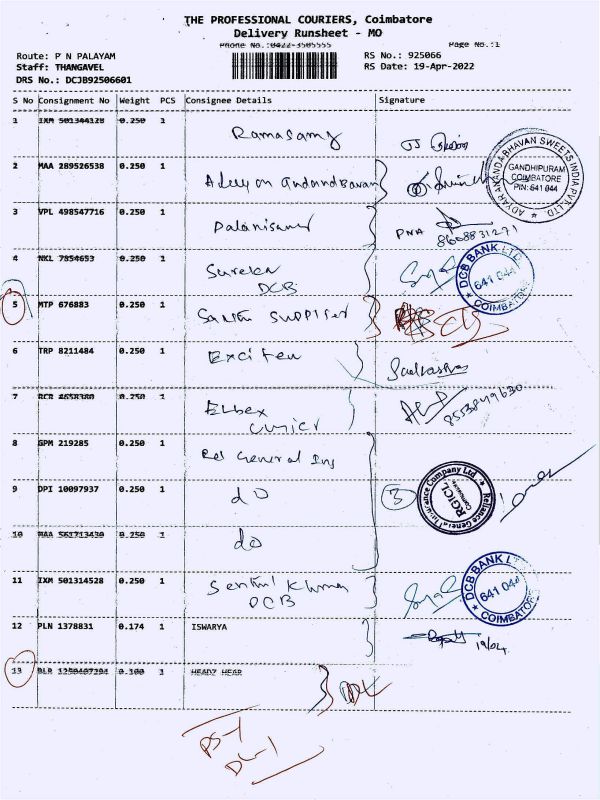 THE PROFESSIONAL COURIERS, Coimbatore
Delivery Runsheet - MO
Phone No.:0422-3505555 Page No.:1
Route: P N PALAYAM RS No.: 925066
Staff: THANGAVEL RS Date: 19-Apr-2022
DRS No.: DCJB92506601
S No Consignment No Weight PCS Consignee Details Signature
1 IXM 501344128 0.250 1 Ramasamy
2 MAA 289526538 0.250 1
ADYAR ANANDA BHAVAN SWEETS INDIA PVT. LTD
GANDHIPURAM
COIMBATORE
PIN: 641 044
3 VPL 498547716 0.250 1 Palanisamy PNA
8608831271
4 NKL 7854653 0.250 1 Sureka
DCB
DCB BANK LTD
641 044
COIMBATORE
5 MTP 676883 0.250 1
6 TRP 8211484 0.250 1
7 RCR 4658380 0.250 1 Elbex
8553849630
8 GPM 219285 0.250 1 Rel General Ins
9 DPI 10097937 0.250 1 do 3
Reliance General Insurance Company Ltd
RGICL
Coimbatore
10 MAA 561713430 0.250 1 do
11 IXM 501314528 0.250 1
DCB
DCB BANK LTD
641 044
COIMBATORE
12 PLN 1378831 0.174 1 ISWARYA
19/04
13 BLR 0.100 1 HEADZ HEAR
PS-1
DL-1